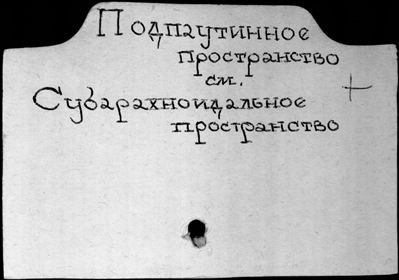 Подпаутинное
пространство
см.
Субарахноидальное
пространство